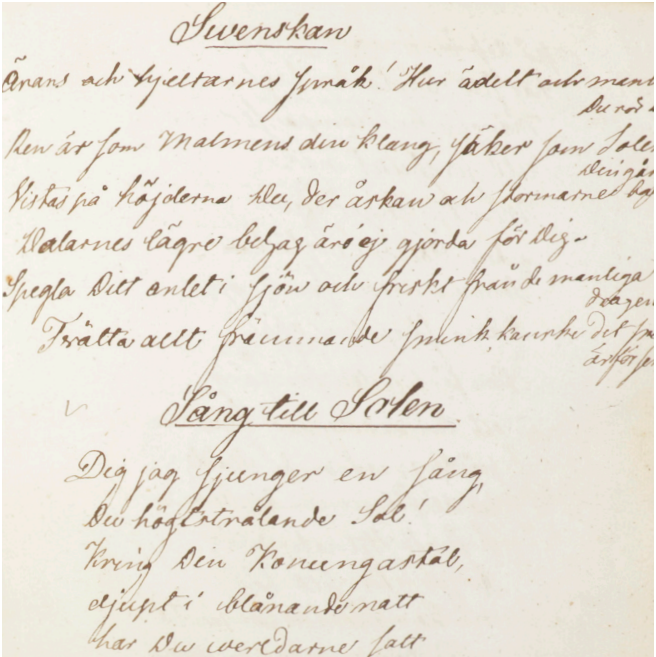 Swenskan
Ärans och hjeltarnes språk! Hur ädelt och man
Du rör
Ren är som Malmens din klang, säker som Solen
Din gån
Vistas på höjderna Du, der åskan och stormarne
Dalarnes lägre behag äro ej gjorda för Dig.
Spegla Ditt anlet i sjön och friskt från de manliga
dragen
Tvätta allt främmande smink, kanske det
är för sen
Sång till Solen.
Dig jag sjunger en sång,
Du högtstrålande Sol!
Kring Din Konungastol,
djupt i blånande natt
har Du werldarne satt